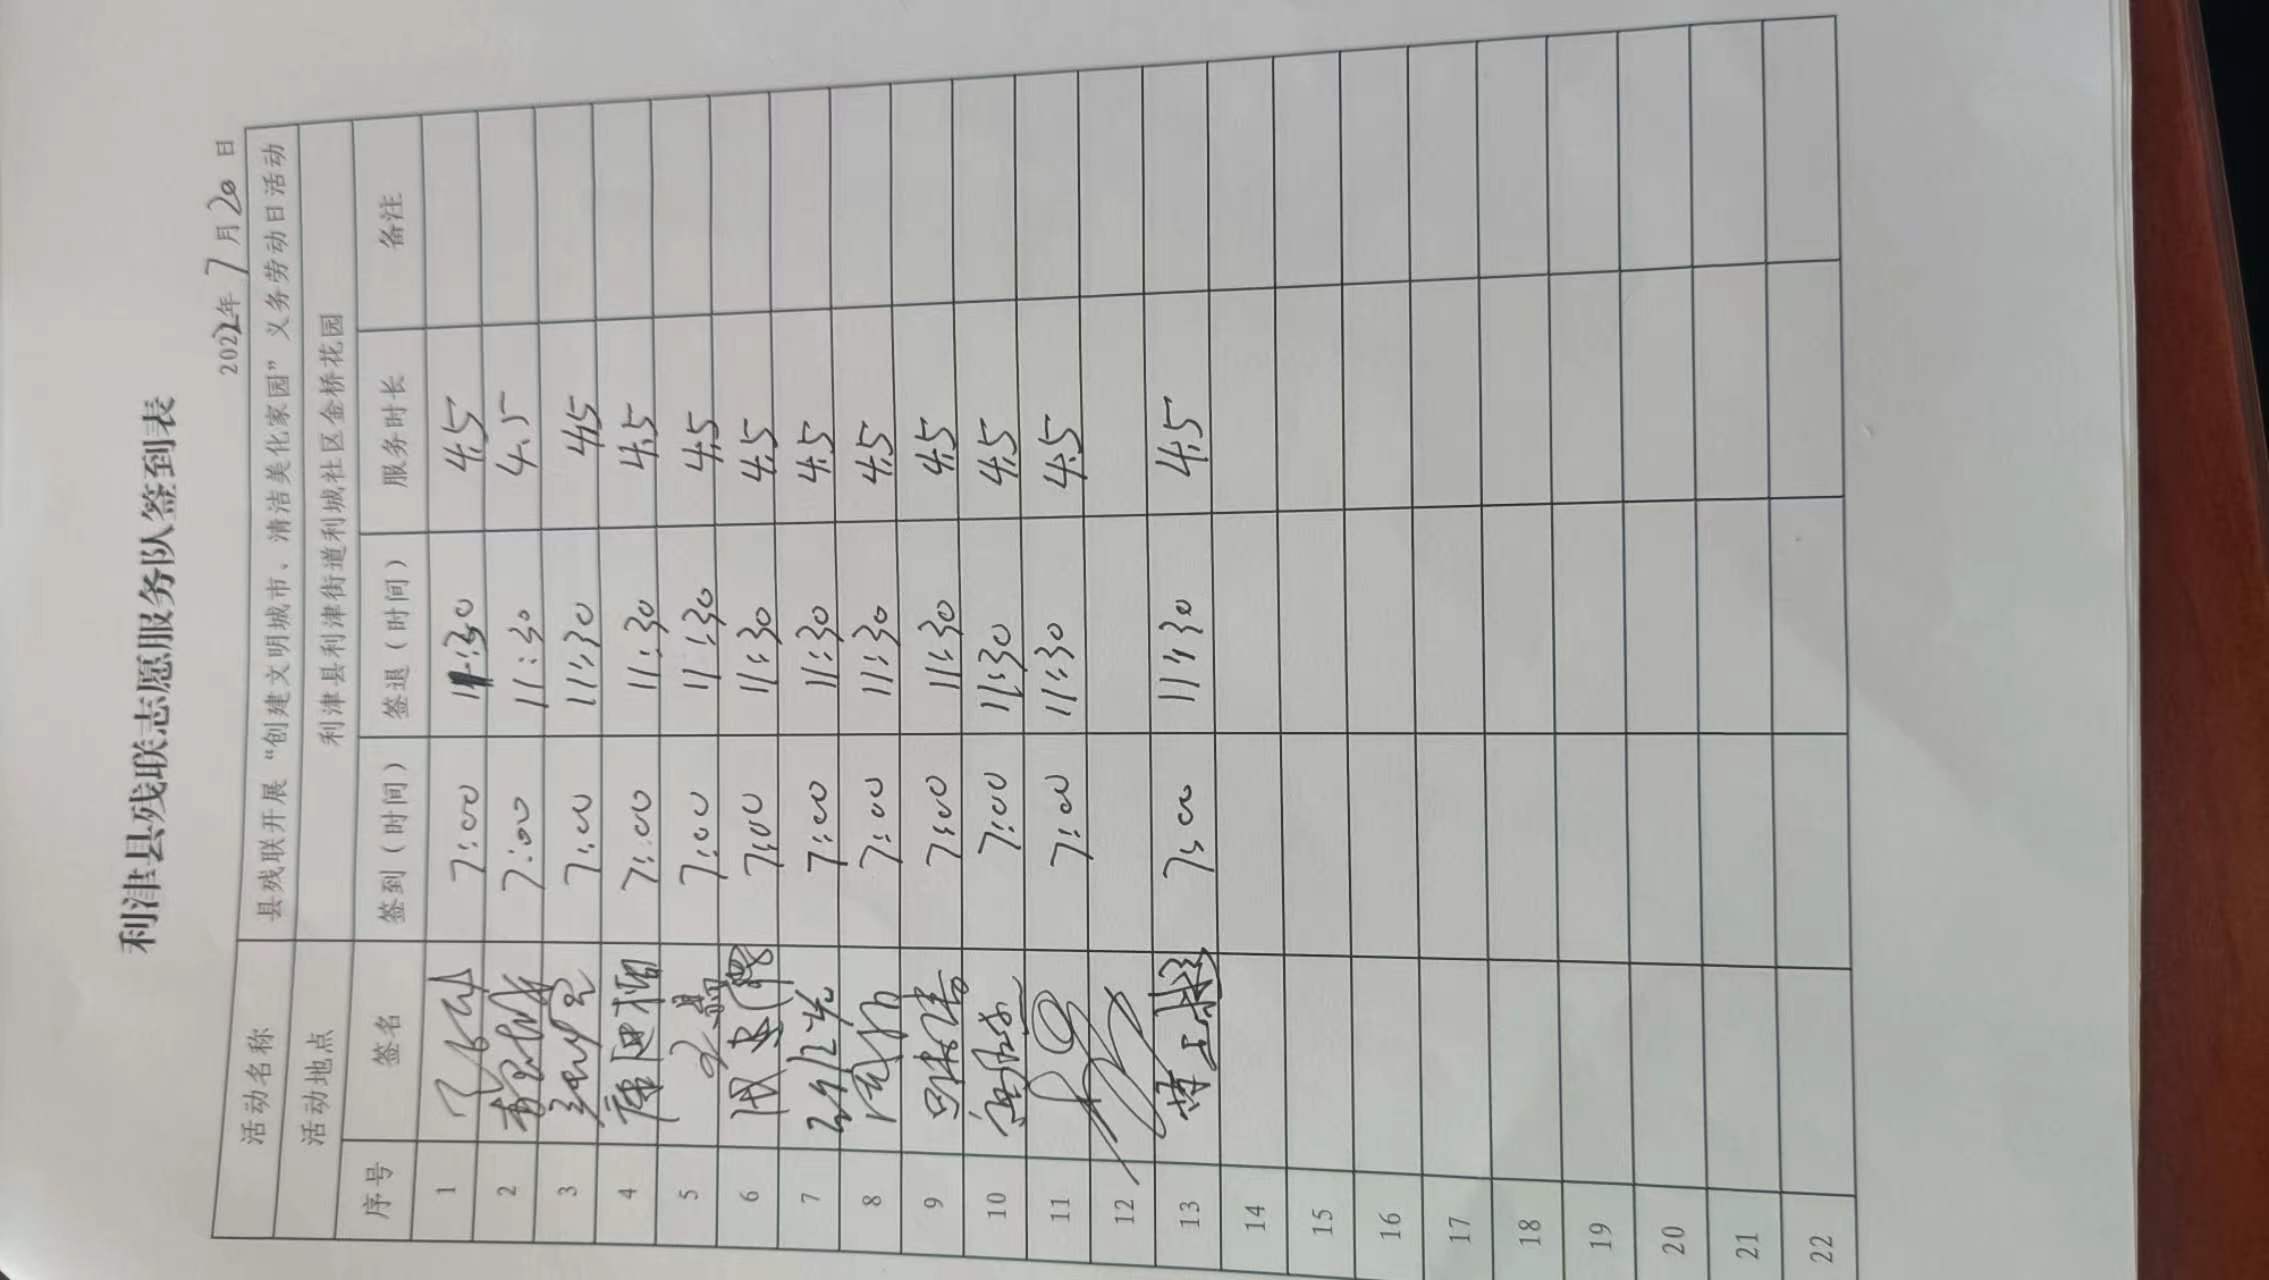 利津县残联志愿服务队签到表
2022年7月20日
活动名称 县残联开展“创建文明城市、清洁美化家园”义务劳动日活动
活动地点 利津县利津街道利城社区金桥花园
序号 签名 签到（时间） 签退（时间） 服务时长 备注
1 7:00 11:30 4.5
2 7:00 11:30 4.5
3 7:00 11:30 4.5
4 7:00 11:30 4.5
5 7:00 11:30 4.5
6 7:00 11:30 4.5
7 7:00 11:30 4.5
8 7:00 11:30 4.5
9 7:00 11:30 4.5
10 7:00 11:30 4.5
11 7:00 11:30 4.5
12
13 7:00 11:30 4.5
14
15
16
17
18
19
20
21
22